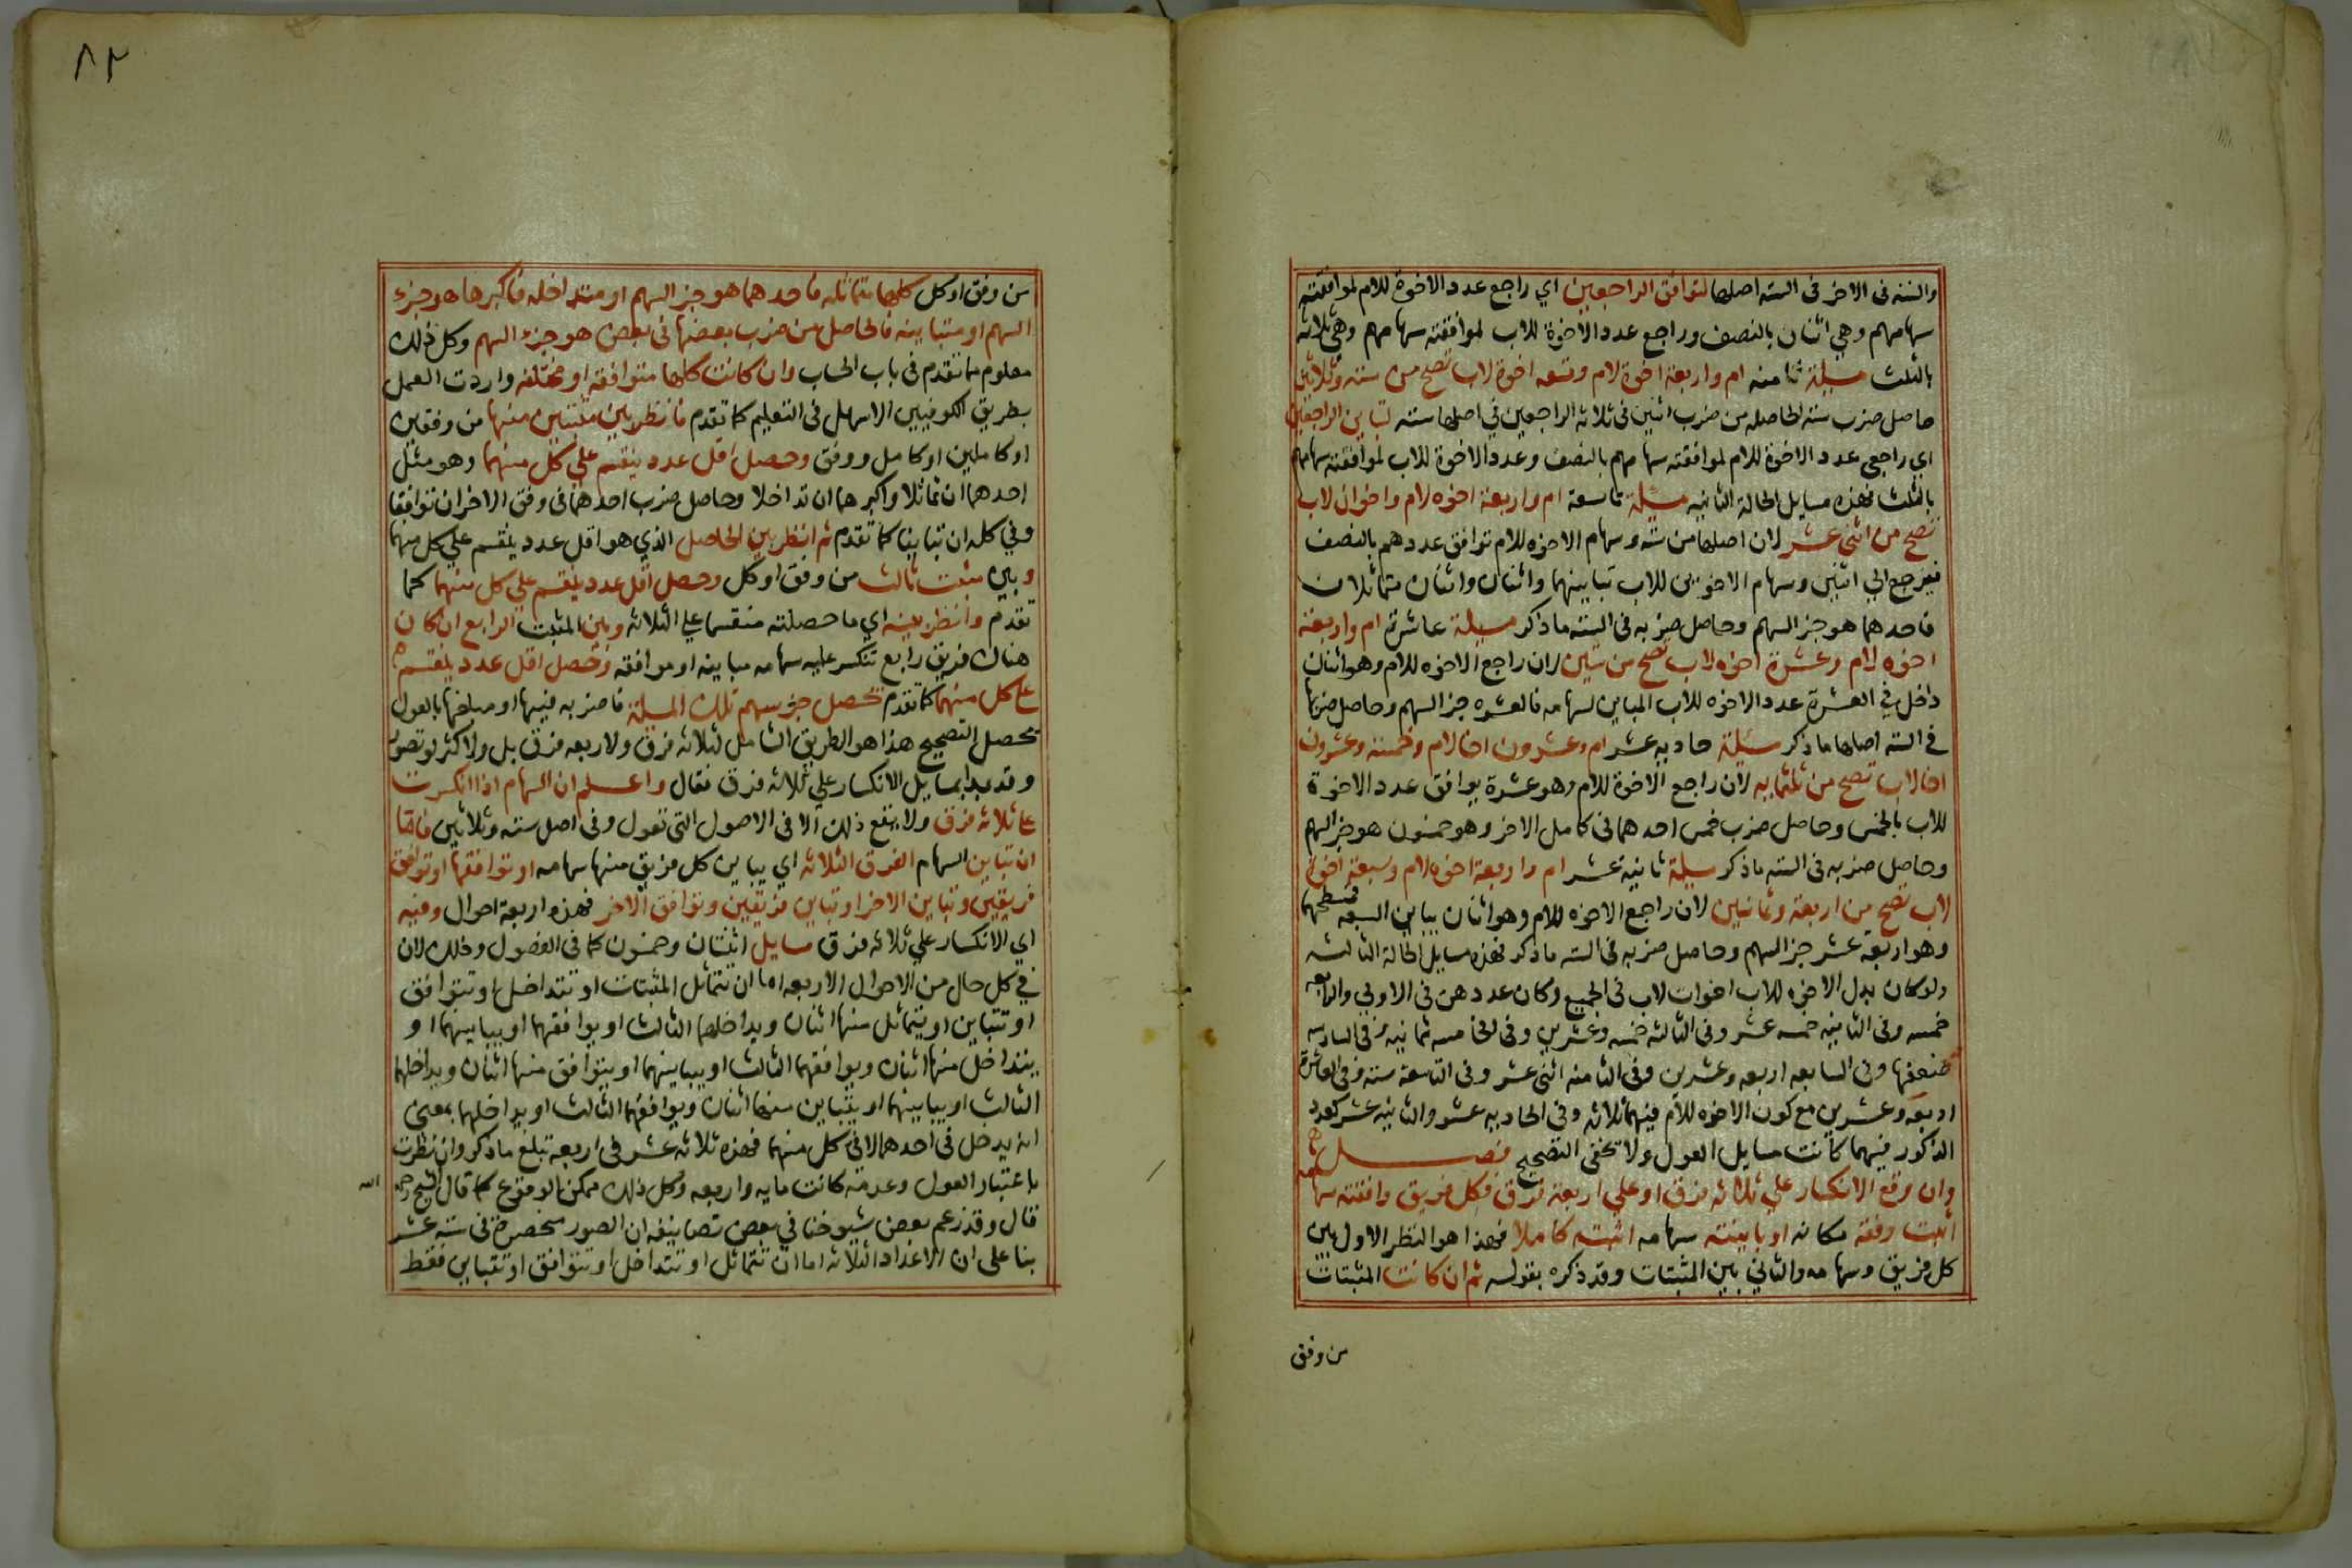 والستة فى الاخر فى الستة اصلها لتوافق الراجعين اي راجع عدد الاخوة للام لموافقته
سهامهم وهي اثنان بالنصف وراجع عدد الاخوة للاب لموافقته سهامهم وهي ثلاثة
بالثلث مسيلة ثامنه ام واربعة اخوة لام وتسعه اخوة لاب تصح من ستة وثلاثين
حاصل ضرب سته الحاصله من ضرب اثنين فى ثلاثه الراجعين في اصلها سته لتباين الراجعين
اي راجعي عدد الاخوة للام لموافقته سهامهم بالنصف وعدد الاخوة للاب لموافقته سهامهم
بالثلث فهذه مسايل الحالة الثانيه مسيلة تاسعة ام واربعة اخوه لام واخوان لاب
تصح من اثني عشر لان اصلها من سته وسهام الاخوه للام توافق عددهم بالنصف
فيرجع الي اثنين وسهام الاخوين للاب تباينهما واثنان واثنان متماثلان
فاحدهما هو جز السهم وحاصل ضربه فى الستة ما ذكر مسيلة عاشرة ام واربعة
اخوه لام وعشرة اخوه لاب تصح من ستين لان راجع الاخوه للام وهو اثنان
داخل في العشرة عدد الاخوه للاب المباين لسهامه فالعشره جز السهم وحاصل ضربها
في الستة اصلها ما ذكر مسيلة حاديه عشر ام وعشرون اخا لام وخمسة وعشرون
اخا لاب تصح من ثلثمايه لان راجع الاخوة للام وهو عشرة يوافق عدد الاخوة
للاب بالخمس وحاصل ضرب خمس احدهما فى كامل الاخر وهو خمسون هو جز السهم
وحاصل ضربه فى الستة ما ذكر مسيلة ثانية عشر ام واربعة اخوه لام وسبعة اخوة
لاب تصح من اربعة وثمانين لان راجع الاخوه للام وهو اثنان يباين السبعه فمسطحهما
وهو اربعة عشر جز السهم وحاصل ضربه فى الستة ما ذكر فهذه مسايل الحالة الثالثه
ولو كان بدل الاخوه للاب اخوات لاب فى الجميع وكان عددهن فى الاولي والرابعه
خمسه وفى الثانيه خمسه عشر وفى الثالثه خمسه وعشرين وفى الخامسه ثمانيه وفى السادسه
ضعفها وفى السابعه اربعه وعشرين وفى الثامنه اثنى عشر وفى التاسعة ستة وفى العاشرة
اربعه وعشرين مع كون الاخوه للام فيهما ثلاثه وفى الحاديه عشر والثانيه عشر كعدد
الذكور فيهما كانت مسايل العول ولا تخفى التصحيح فصل
وان وقع الانكسار علي ثلاثه فرق او علي اربعة فرق فكل فريق وافقته سهامه
اثبت وفقه مكانه او باينته سهامه اثبته كاملا فهذا هو النظر الاول بين
كل فريق وسهامه والثاني بين المثبتات وقد ذكره بقوله ثم ان كانت المثبتات
من وفق
٨٢
من وفق او كل كلها متماثله فاحدهما هو جز السهم او متداخله فاكبرها هو جزء
السهم او متباينه فالحاصل من ضرب بعضها فى بعض هو جزء السهم وكل ذلك
معلوم مما تقدم فى باب الحساب وان كانت كلها متوافقه او مختلفه واردت العمل
بطريق الكوفيين الاسهل فى التعليم كما تقدم فانظر بين مثبتين منها من وفقين
او كاملين او كامل ووفق وحصل اقل عدد ينقسم علي كل منهما وهو مثل
احدهما ان تماثلا واكبرهما ان تداخلا وحاصل ضرب احدهما فى وفق الاخر ان توافقا
وفي كله ان تباينا كما تقدم ثم انظر بين الحاصل الذي هو اقل عدد ينقسم علي كل منهما
وبين مثبت ثالث من وفق او كل وحصل اقل عدد ينقسم علي كل منهما كما
تقدم وانظر بينه اي ما حصلته منقسما علي الثلاثه وبين المثبت الرابع ان كان
هناك فريق رابع تنكسر عليه سهامه مباينه او موافقه وحصل اقل عدد ينقسم
علي كل منهما كما تقدم يحصل جزء سهم تلك المسيلة فاضربه فيها او مبلغها بالعول
يحصل التصحيح هذا هو الطريق الشامل لثلاثه فرق ولاربعه فرق بل ولاكثر لو تصور
وقد بدا بمسايل الانكسار علي ثلاثه فرق فقال واعلم ان السهام اذا انكسرت
على ثلاثه فرق ولا يقع ذلك الا فى الاصول التى تعول وفى اصل سته وثلاثين فاما
ان تباين السهام الفرق الثلاثه اي يباين كل فريق منها سهامه او توافقها او توافق
فريقين وتباين الاخر او تباين فريقين وتوافق الاخر فهذه اربعة احوال وفيه
اي الانكسار علي ثلاثه فرق مسايل اثنتان وخمسون كما فى الفصول وذلك لان
في كل حال من الاحوال الاربعه اما ان تتماثل المثبتات او تتداخل او تتوافق
او تتباين او يتماثل منها اثنان ويداخلها الثالث او يوافقهما او يباينهما او
يتداخل منها اثنان ويوافقهما الثالث او يباينهما او يتوافق منها اثنان ويداخلهما
الثالث او يباينهما او يتباين منهما اثنان ويوافقهما الثالث او يداخلهما بمعنى
انه يدخل فى احدهما لا فى كل منهما فهذه ثلاثه عشر فى اربعة تبلغ ما ذكر وان نظرت
باعتبار العول وعدمه كانت مايه واربعه وكل ذلك ممكن الوقوع كما قال الشيخ رحمه الله
قال وقد زعم بعض شيوخنا في بعض تصانيفه ان الصور منحصرة فى ستة عشر
بنا على ان الاعداد الثلاثه اما ان تتماثل او تتداخل او تتوافق او تتباين فقط